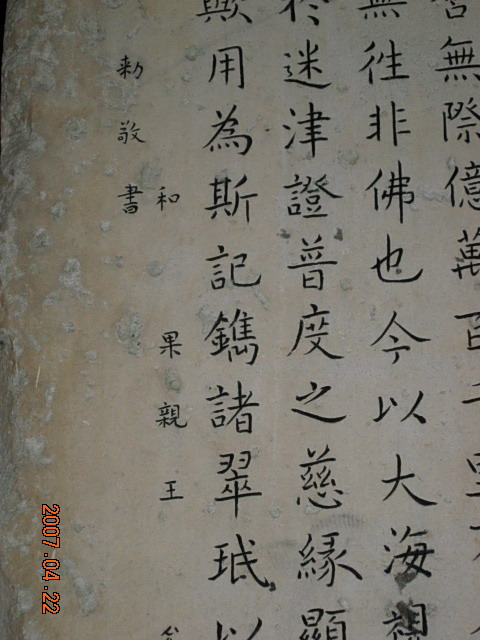 無際億萬百千
無徃非佛也今以大海
迷津證普度之慈緣顯
歟用為斯記鐫諸翠珉以
和 果親王
勑敬書
2007.04.22